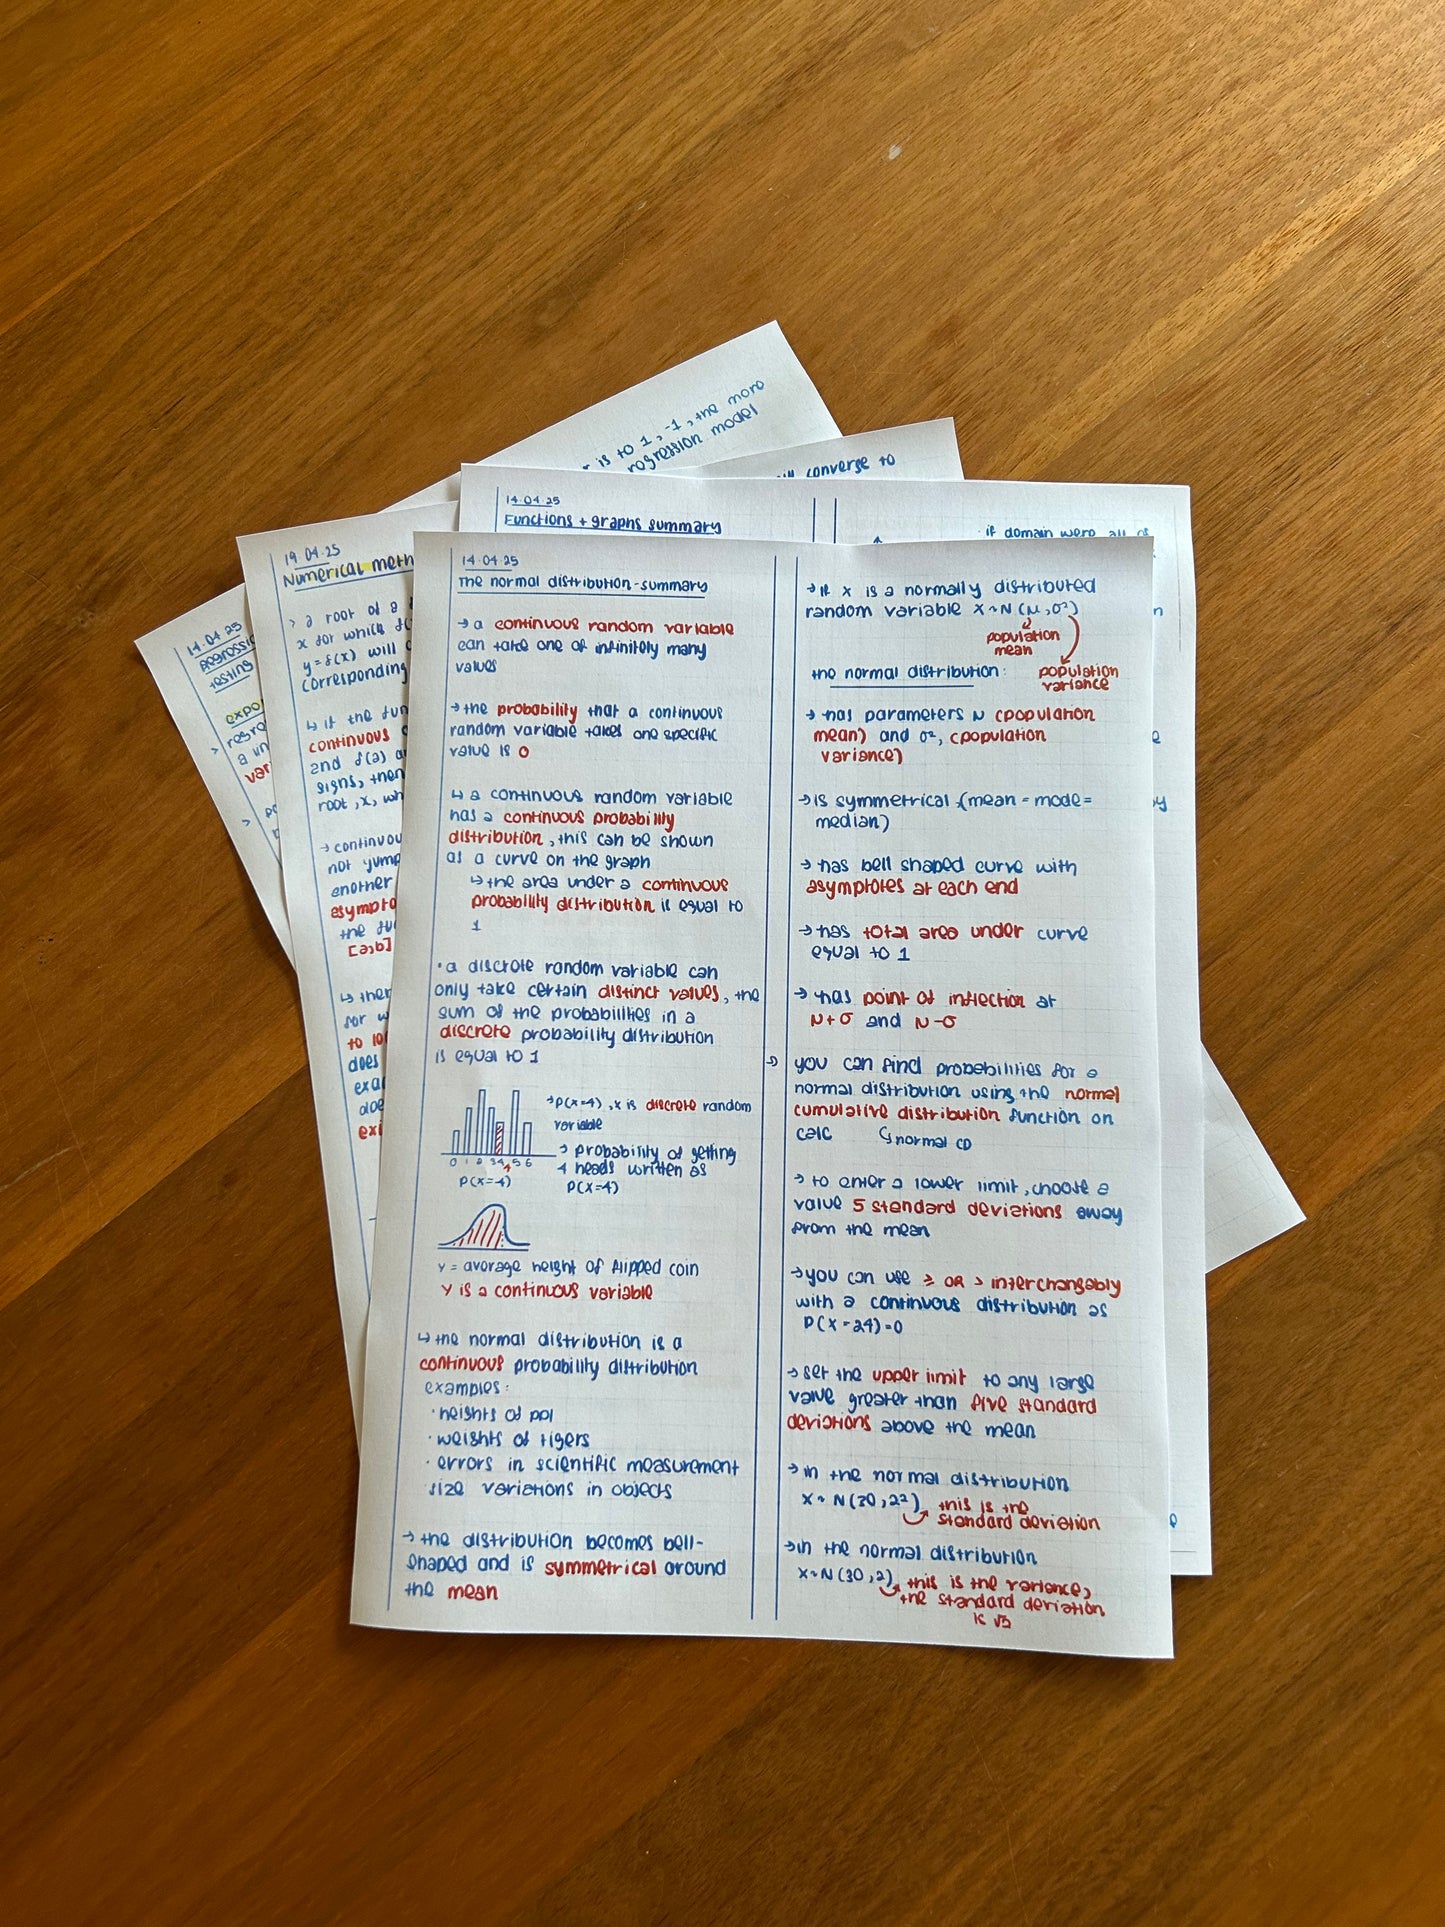 r is to 1, -1, the more
regression model
converge to
14.04.25
Functions + graphs summary
if domain were all of
19.04.25
Numerical meth
> a root of a
x for which f(
y = f(x) will
corresponding
↳ if the fun
continuous
and f(a) a
signs, then
root, x, wh
→ continuou
not jump
another
asympto
the fu
[a,b]
↳ ther
for w
to loo
does
exa
doe
exi
14.04.25
regressio
testing
expo
> regre
a un
var
> po
14.04.25
The normal distribution - summary
→ a continuous random variable
can take one of infinitely many
values
→ the probability that a continuous
random variable takes one specific
value is 0
↳ a continuous random variable
has a continuous probability
distribution, this can be shown
as a curve on the graph
↳ the area under a continuous
probability distribution is equal to
1
· a discrete random variable can
only take certain distinct values, the
sum of the probabilities in a
discrete probability distribution
is equal to 1
→ P(X=4), x is discrete random
variable
→ probability of getting
4 heads written as
P(X=4)
0 1 2 3 4 5 6
P(X=4)
Y = average height of flipped coin
Y is a continuous variable
↳ the normal distribution is a
continuous probability distribution
examples:
· heights of ppl
· weights of tigers
· errors in scientific measurement
· size variations in objects
→ the distribution becomes bell-
shaped and is symmetrical around
the mean
→ if x is a normally distributed
random variable X ~ N (μ, σ²)
population
mean
population
variance
the normal distribution:
→ has parameters μ (population
mean) and σ², (population
variance)
→ is symmetrical, (mean = mode =
median)
→ has bell shaped curve with
asymptotes at each end
→ has total area under curve
equal to 1
→ has point of inflection at
μ+σ and μ-σ
→ you can find probabilities for a
normal distribution using the normal
cumulative distribution function on
calc ↳ normal CD
→ to enter a lower limit, choose a
value 5 standard deviations away
from the mean
→ you can use ≥ OR > interchangably
with a continuous distribution as
P(X=24)=0
→ set the upper limit to any large
value greater than five standard
deviations above the mean
→ in the normal distribution
X ~ N(30, 2²) this is the
standard deviation
→ in the normal distribution
X ~ N(30, 2) this is the variance,
the standard deviation
is √2